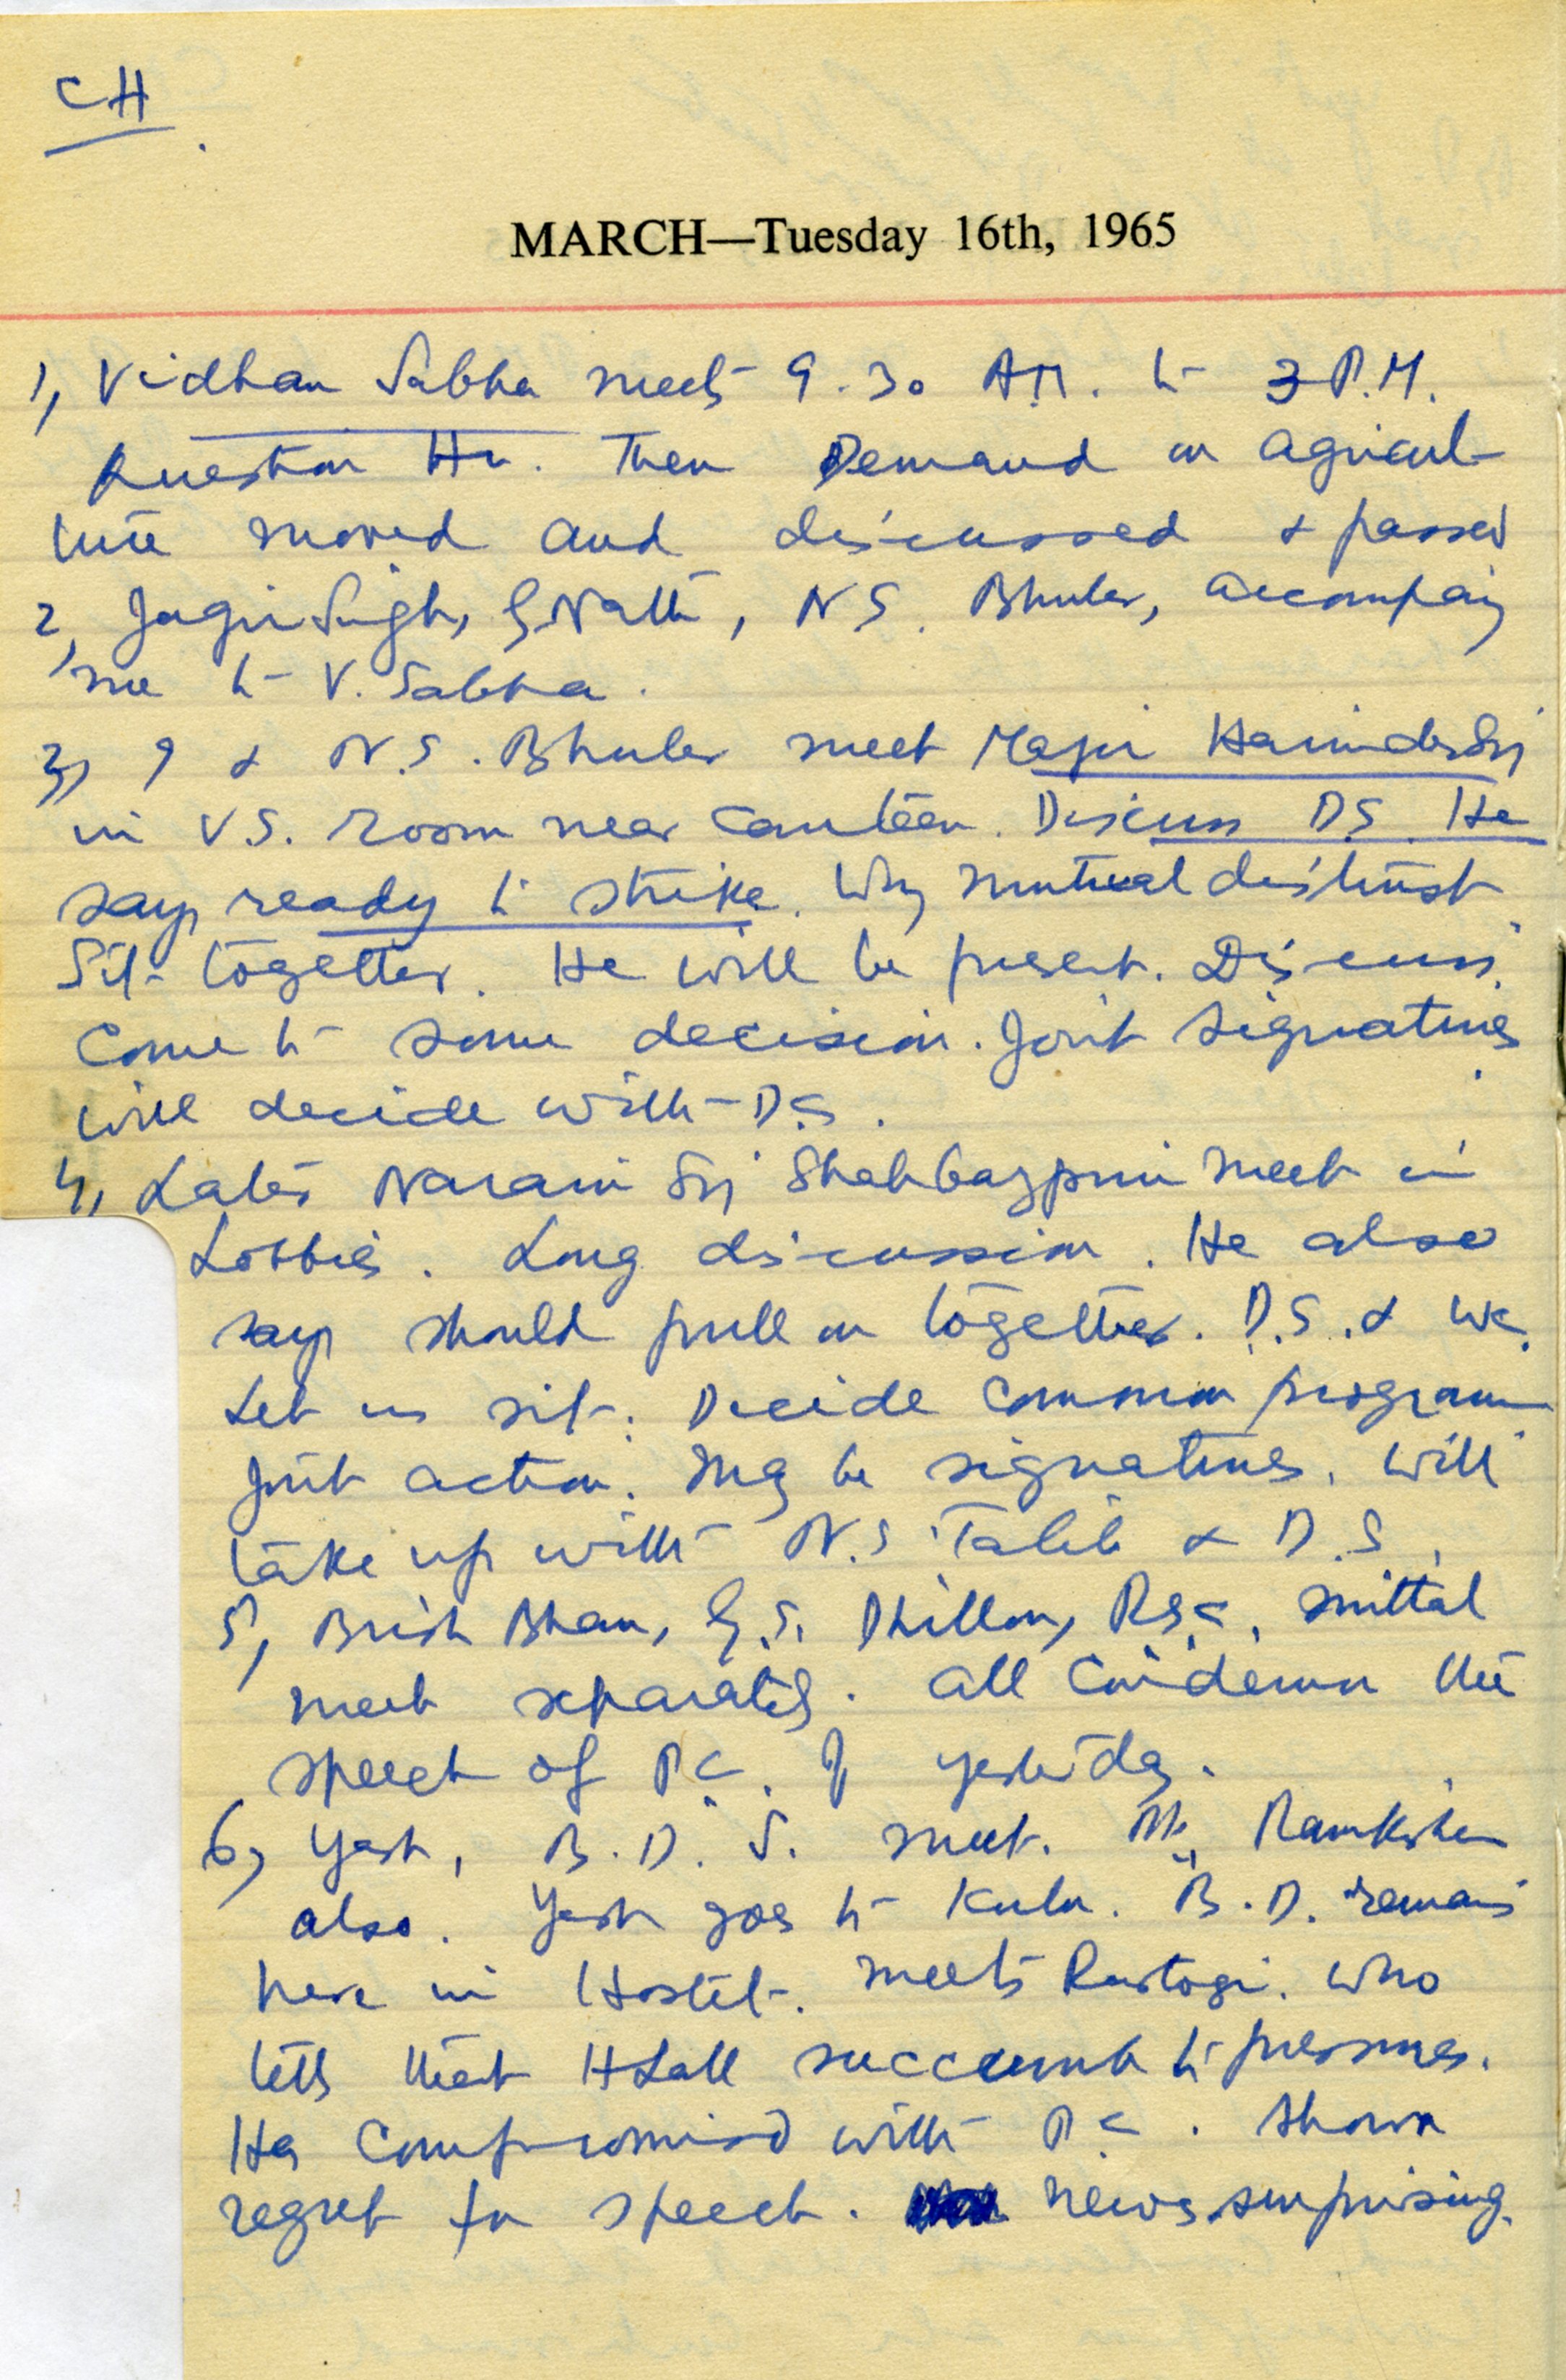 CH
MARCH—Tuesday 16th, 1965
1, Vidhan Sabha meets 9.30 A.M. to 3 P.M.
Question Hr. Then Demand on agricul-
ture moved and discussed & passed
2, Jagir Singh, G Nath, N S. Bhuler, accompany
me to V. Sabha.
3, I & N.S. Bhuler meet Major Harinder Sg
in V S. room near canteen. Discuss D.S. He
says ready to strike. Why mutual distrust
Sit together. He will be present. Discuss.
Come to some decision. Joint signatures
will decide with D.S.
4, Later Narain Sg Shahbazpuri meet in
Lobbies. Long discussion. He also
says should pull on together. D.S. & we.
Let us sit. Decide common program
Joint action. May be signatures. Will
take up with N.S. Talib & D.S.
5, Brish Bhan, G.S. Dhillon, Mittal
meet separately. All condemn the
speech of P.C. of yesterday.
6, Yash, B.D. S. meet. Ramkishen
also. Yash goes to Kulu. B.D. remains
here in Hostel. Meets Rastogi. Who
tells that H Lall succumb to pressures.
Has compromised with P.C. Shown
regret for speech. News surprising.